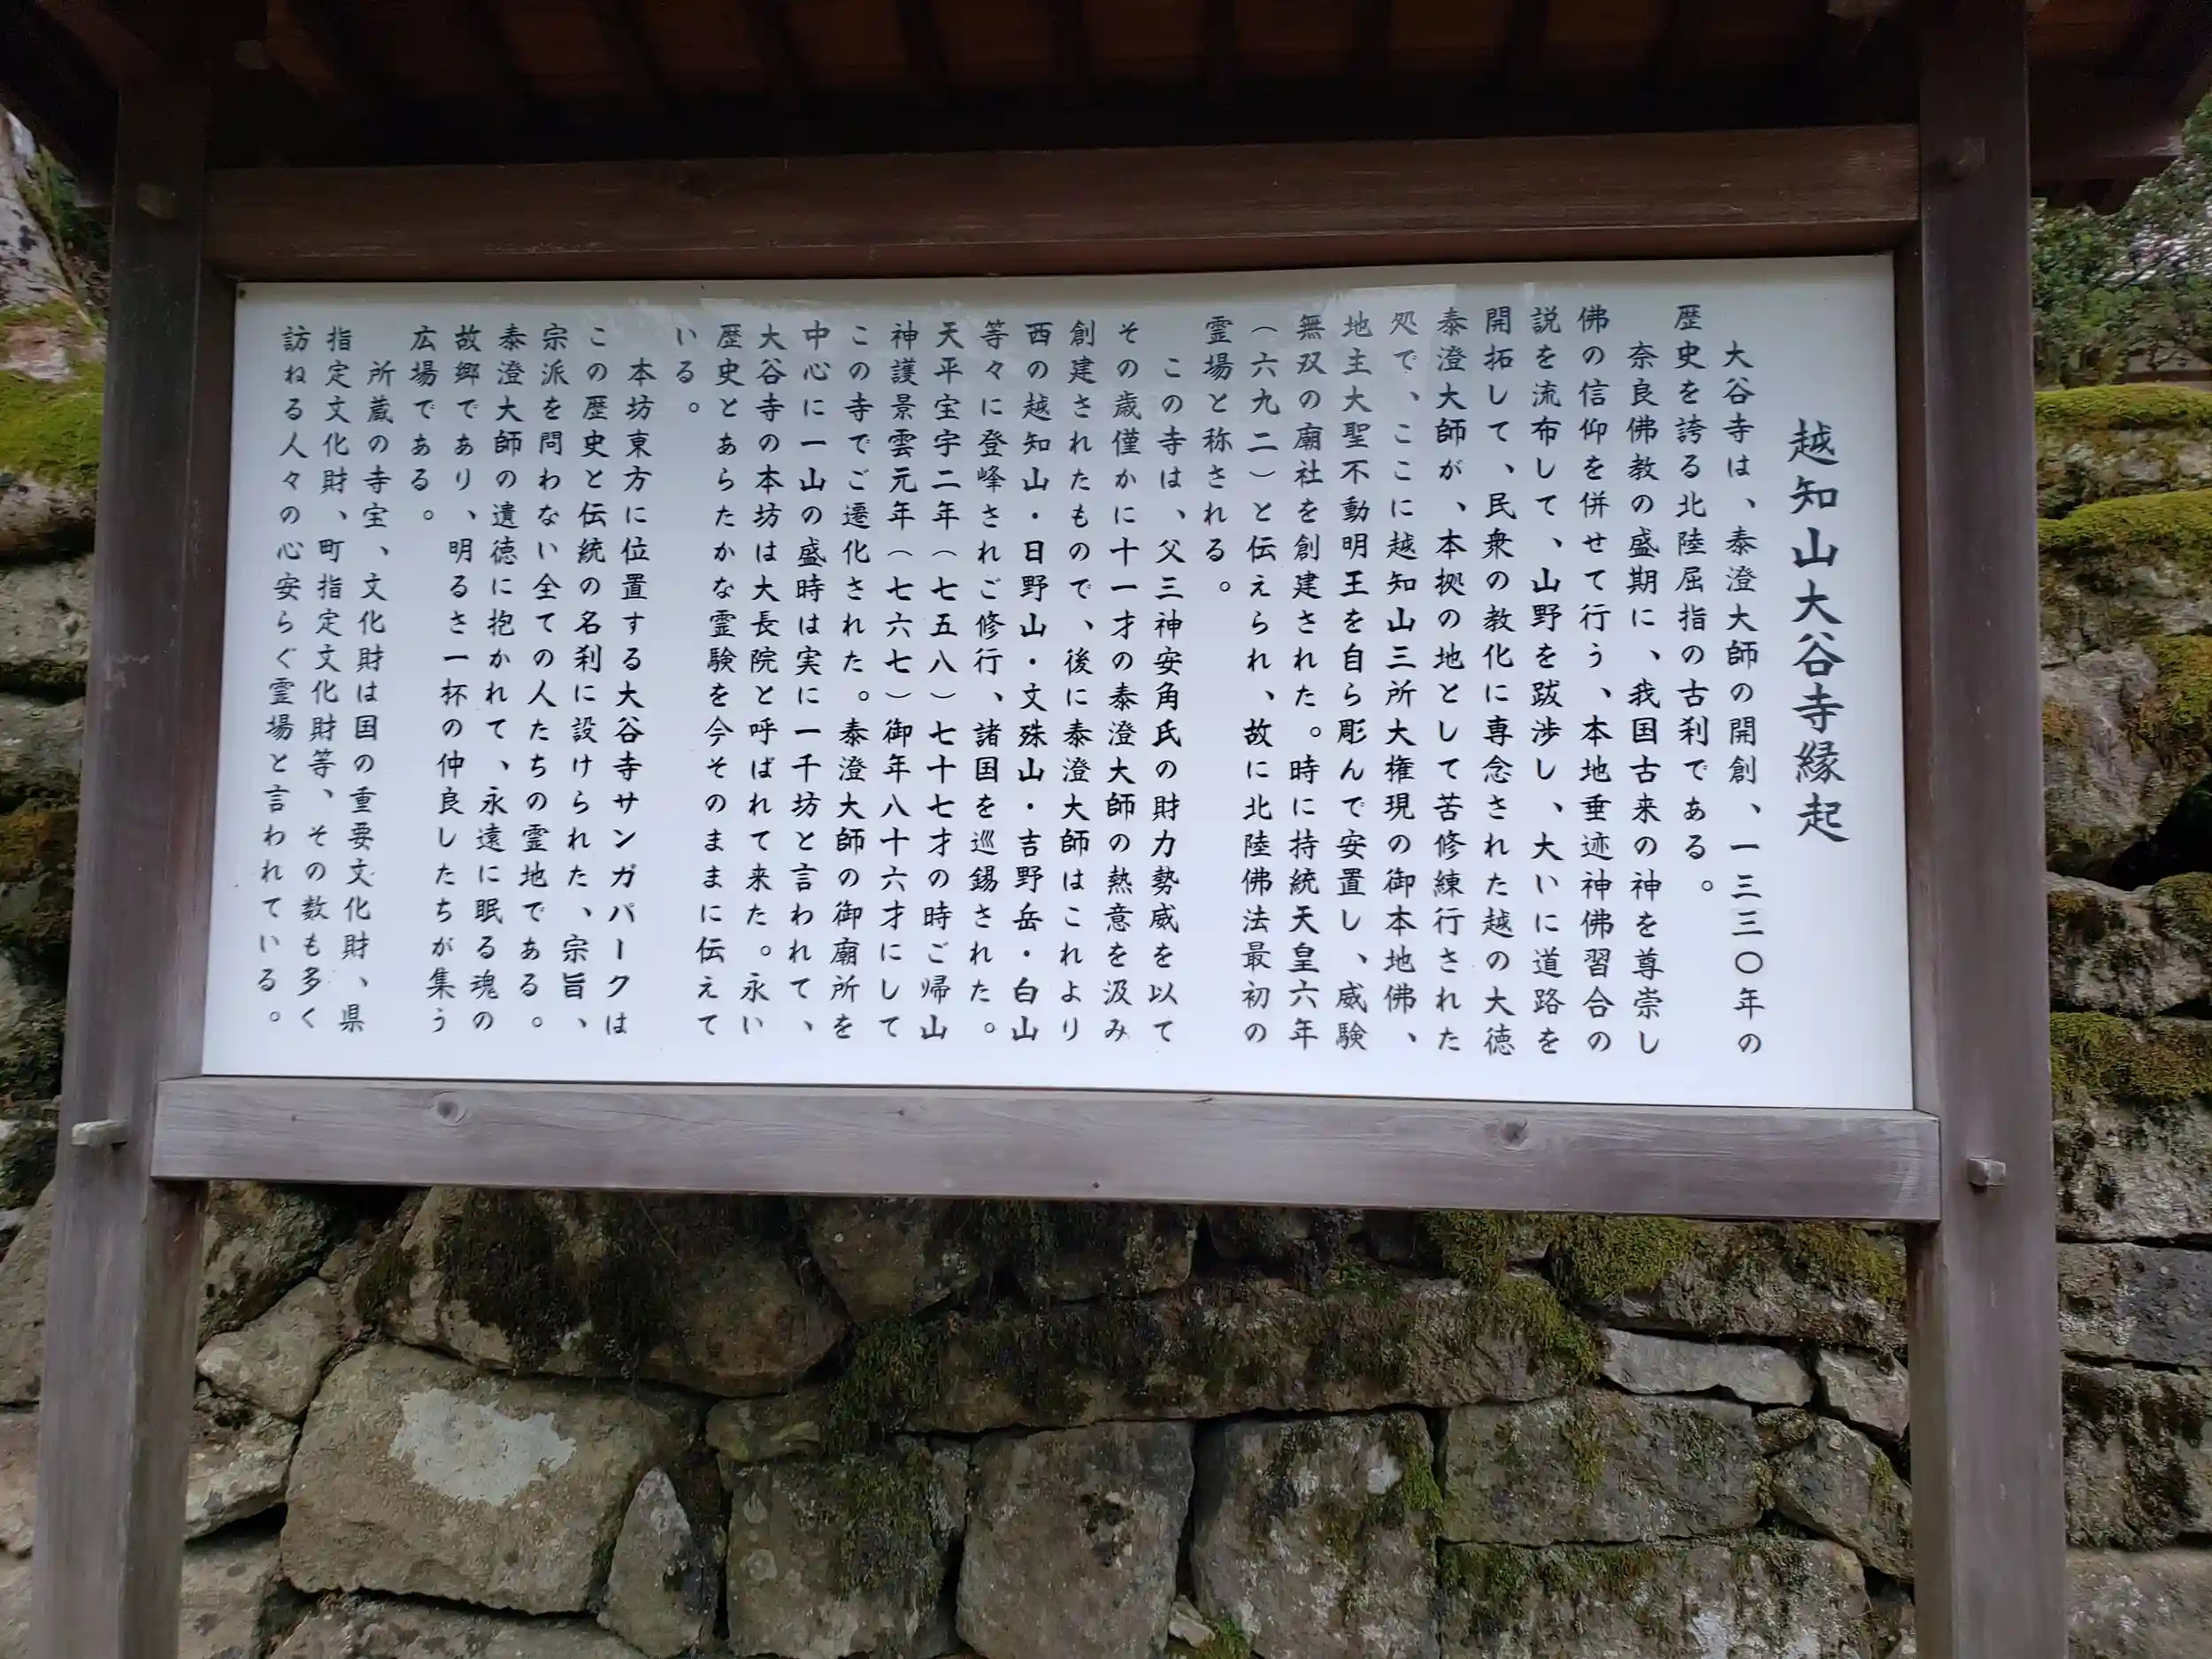 越知山大谷寺縁起
大谷寺は、泰澄大師の開創、一三三〇年の
歴史を誇る北陸屈指の古刹である。
奈良佛教の盛期に、我国古来の神を尊崇し
佛の信仰を併せて行う、本地垂迹神佛習合の
説を流布して、山野を跋渉し、大いに道路を
開拓して、民衆の教化に専念された越の大徳
泰澄大師が、本拠の地として苦修練行された
処で、ここに越知山三所大権現の御本地佛、
地主大聖不動明王を自ら彫んで安置し、威験
無双の廟社を創建された。時に持統天皇六年
（六九二）と伝えられ、故に北陸佛法最初の
霊場と称される。
この寺は、父三神安角氏の財力勢威を以て
その歳僅かに十一才の泰澄大師の熱意を汲み
創建されたもので、後に泰澄大師はこれより
西の越知山・日野山・文殊山・吉野岳・白山
等々に登峰されご修行、諸国を巡錫された。
天平宝宇二年（七五八）七十七才の時ご帰山
神護景雲元年（七六七）御年八十六才にして
この寺でご遷化された。泰澄大師の御廟所を
中心に一山の盛時は実に一千坊と言われて、
大谷寺の本坊は大長院と呼ばれて来た。永い
歴史とあらたかな霊験を今そのままに伝えて
いる。
本坊東方に位置する大谷寺サンガパークは
この歴史と伝統の名刹に設けられた、宗旨、
宗派を問わない全ての人たちの霊地である。
泰澄大師の遺徳に抱かれて、永遠に眠る魂の
故郷であり、明るさ一杯の仲良したちが集う
広場である。
所蔵の寺宝、文化財は国の重要文化財、県
指定文化財、町指定文化財等、その数も多く
訪ねる人々の心安らぐ霊場と言われている。